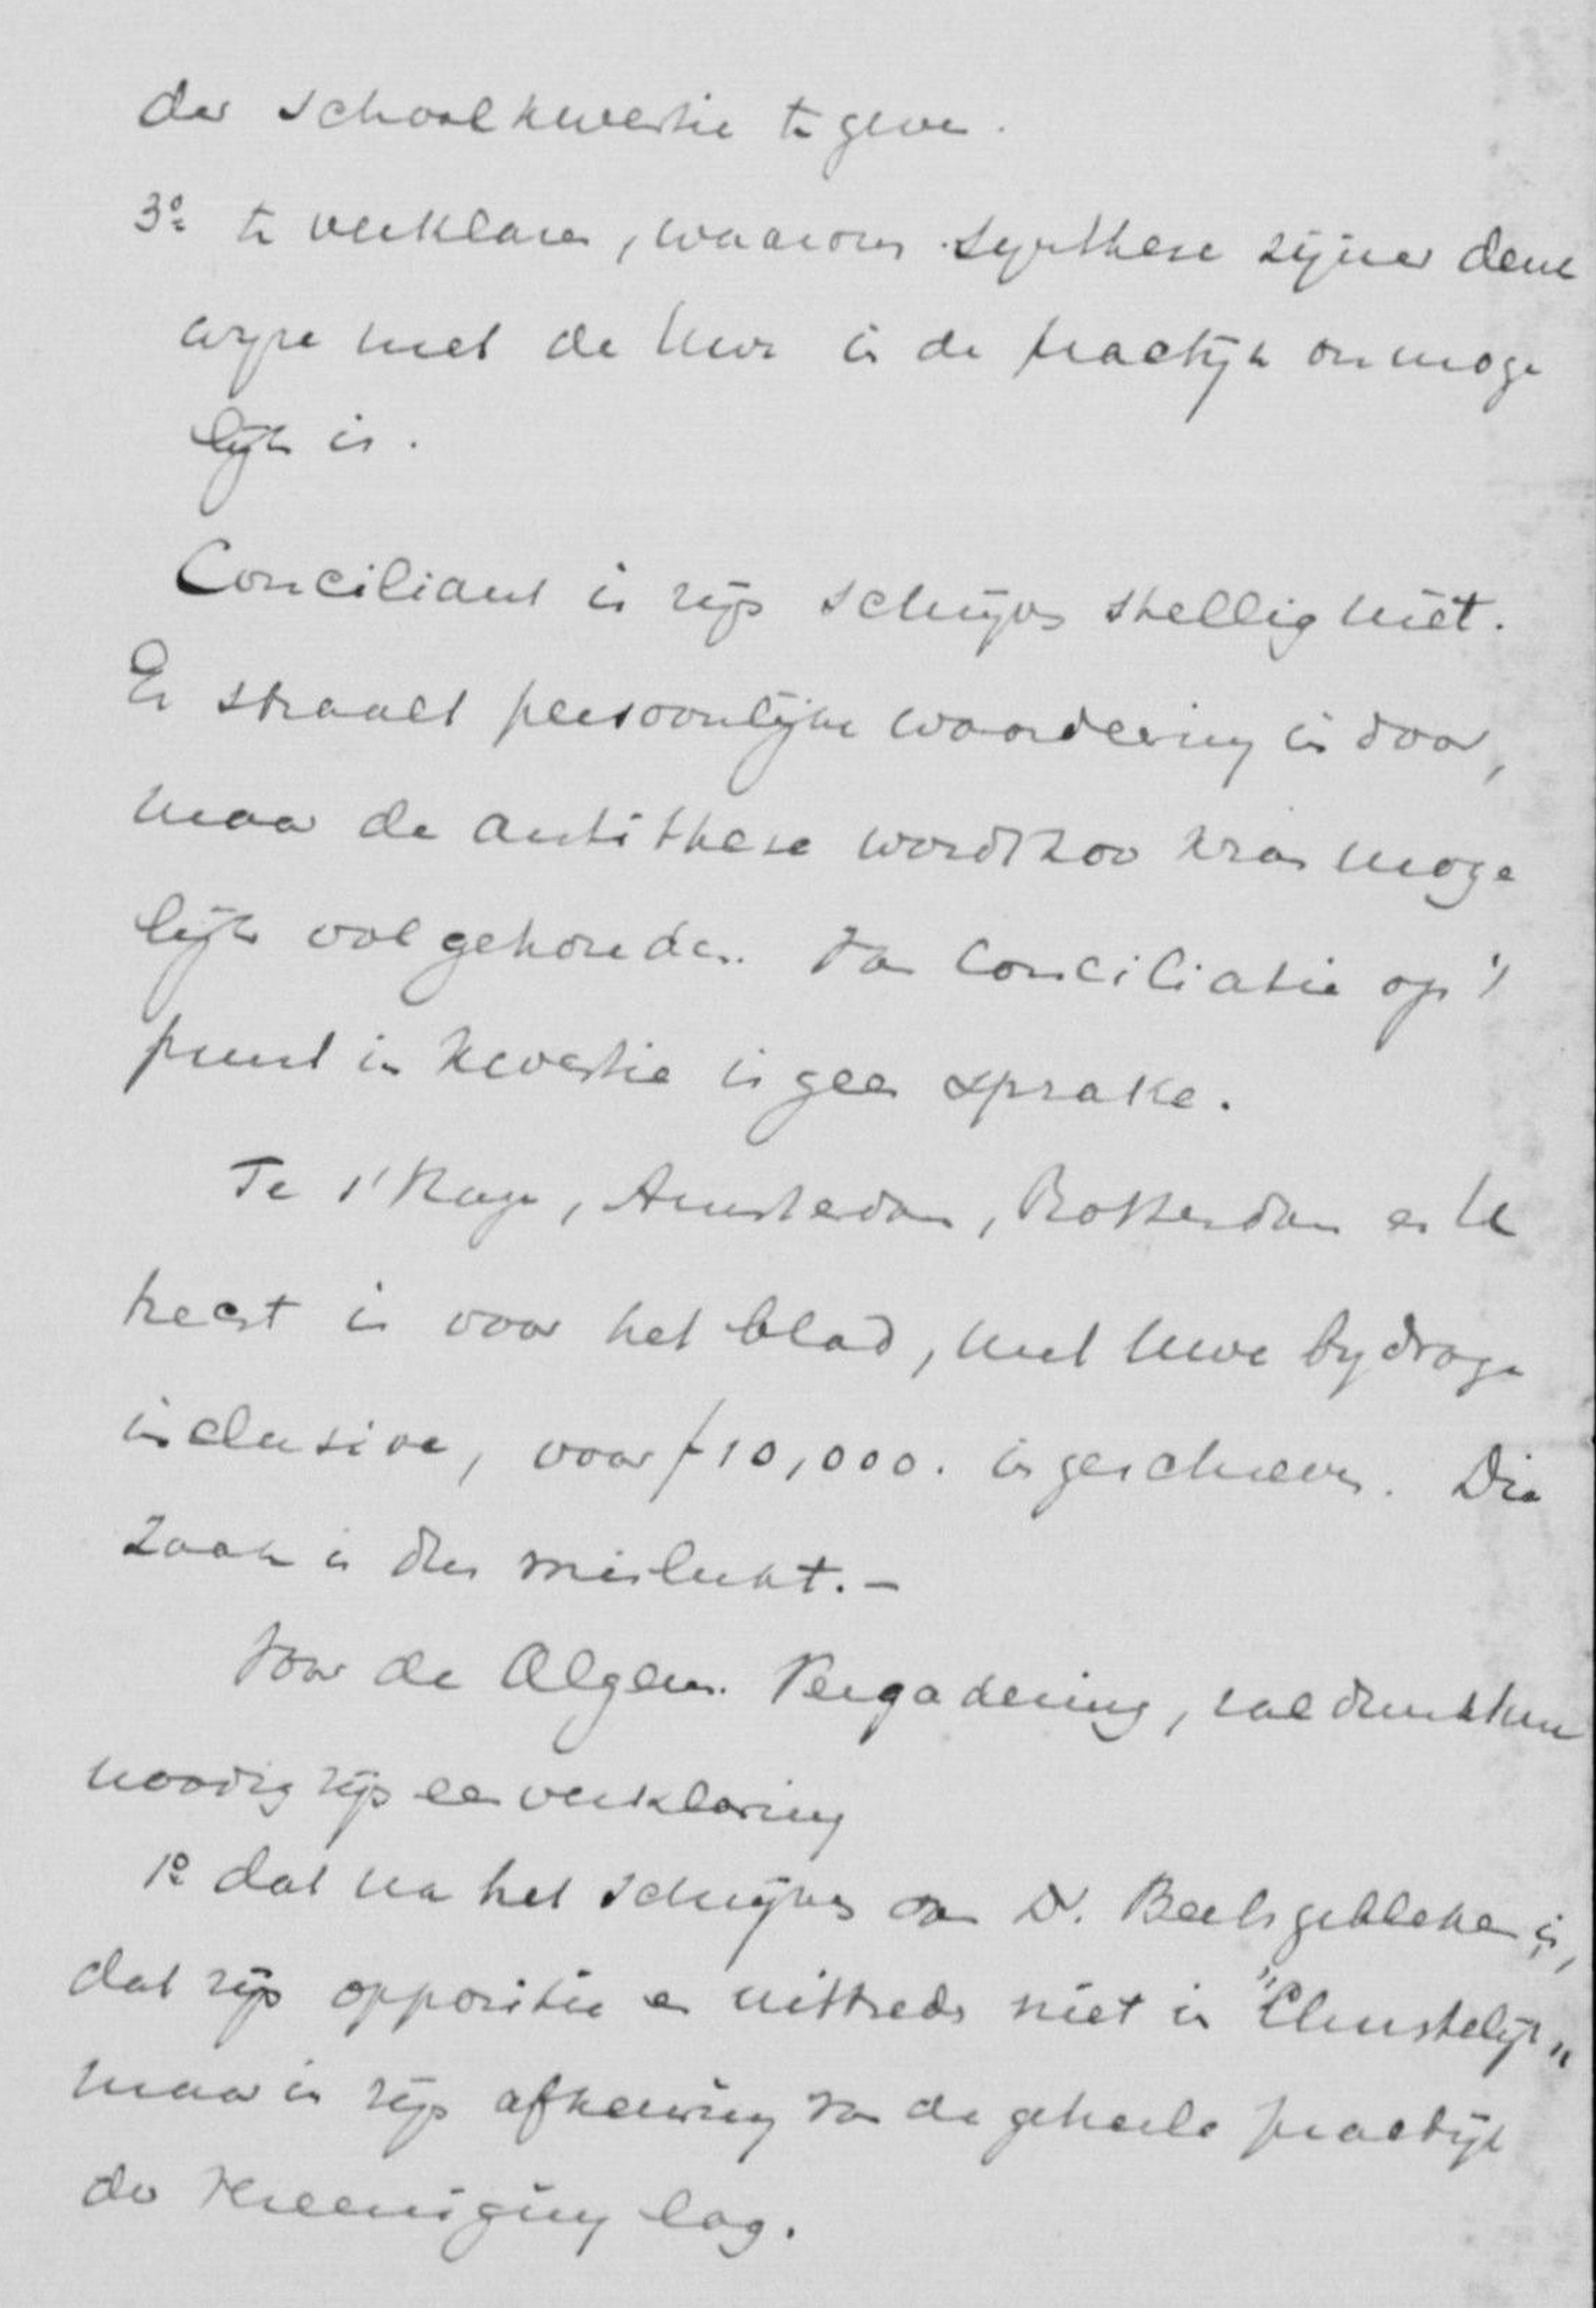 der schoolkwestie te geven.
3º te verklaren, waarom synthese zijner denk
wijze met de Uwe in de practijk onmoge
lijk is.
Conciliant is zijn schrijven stellig niet.
Er straalt persoonlijke waardeering in door,
maar de antithese wordt zoo kras moge
lijk volgehouden. Van Conciliatie op 't
punt in kwestie is geen sprake.
Te 's Hage, Amsterdam, Rotterdam en U
trecht is voor het blad, met Uwe bydrage
inclusive, voor f 10,000. ingeschreven. Die
zaak is dus mislukt. –
Voor de Algem. Vergadering, zal dunkt me
noodig zijn een verklaring
1º dat na het schrijven van Dr. Beets gebleken is,
dat zijn oppositie en uittreden niet in "Christelijk"
maar in zijn afkeuring van de geheele practijk
der Vereeniging lag.